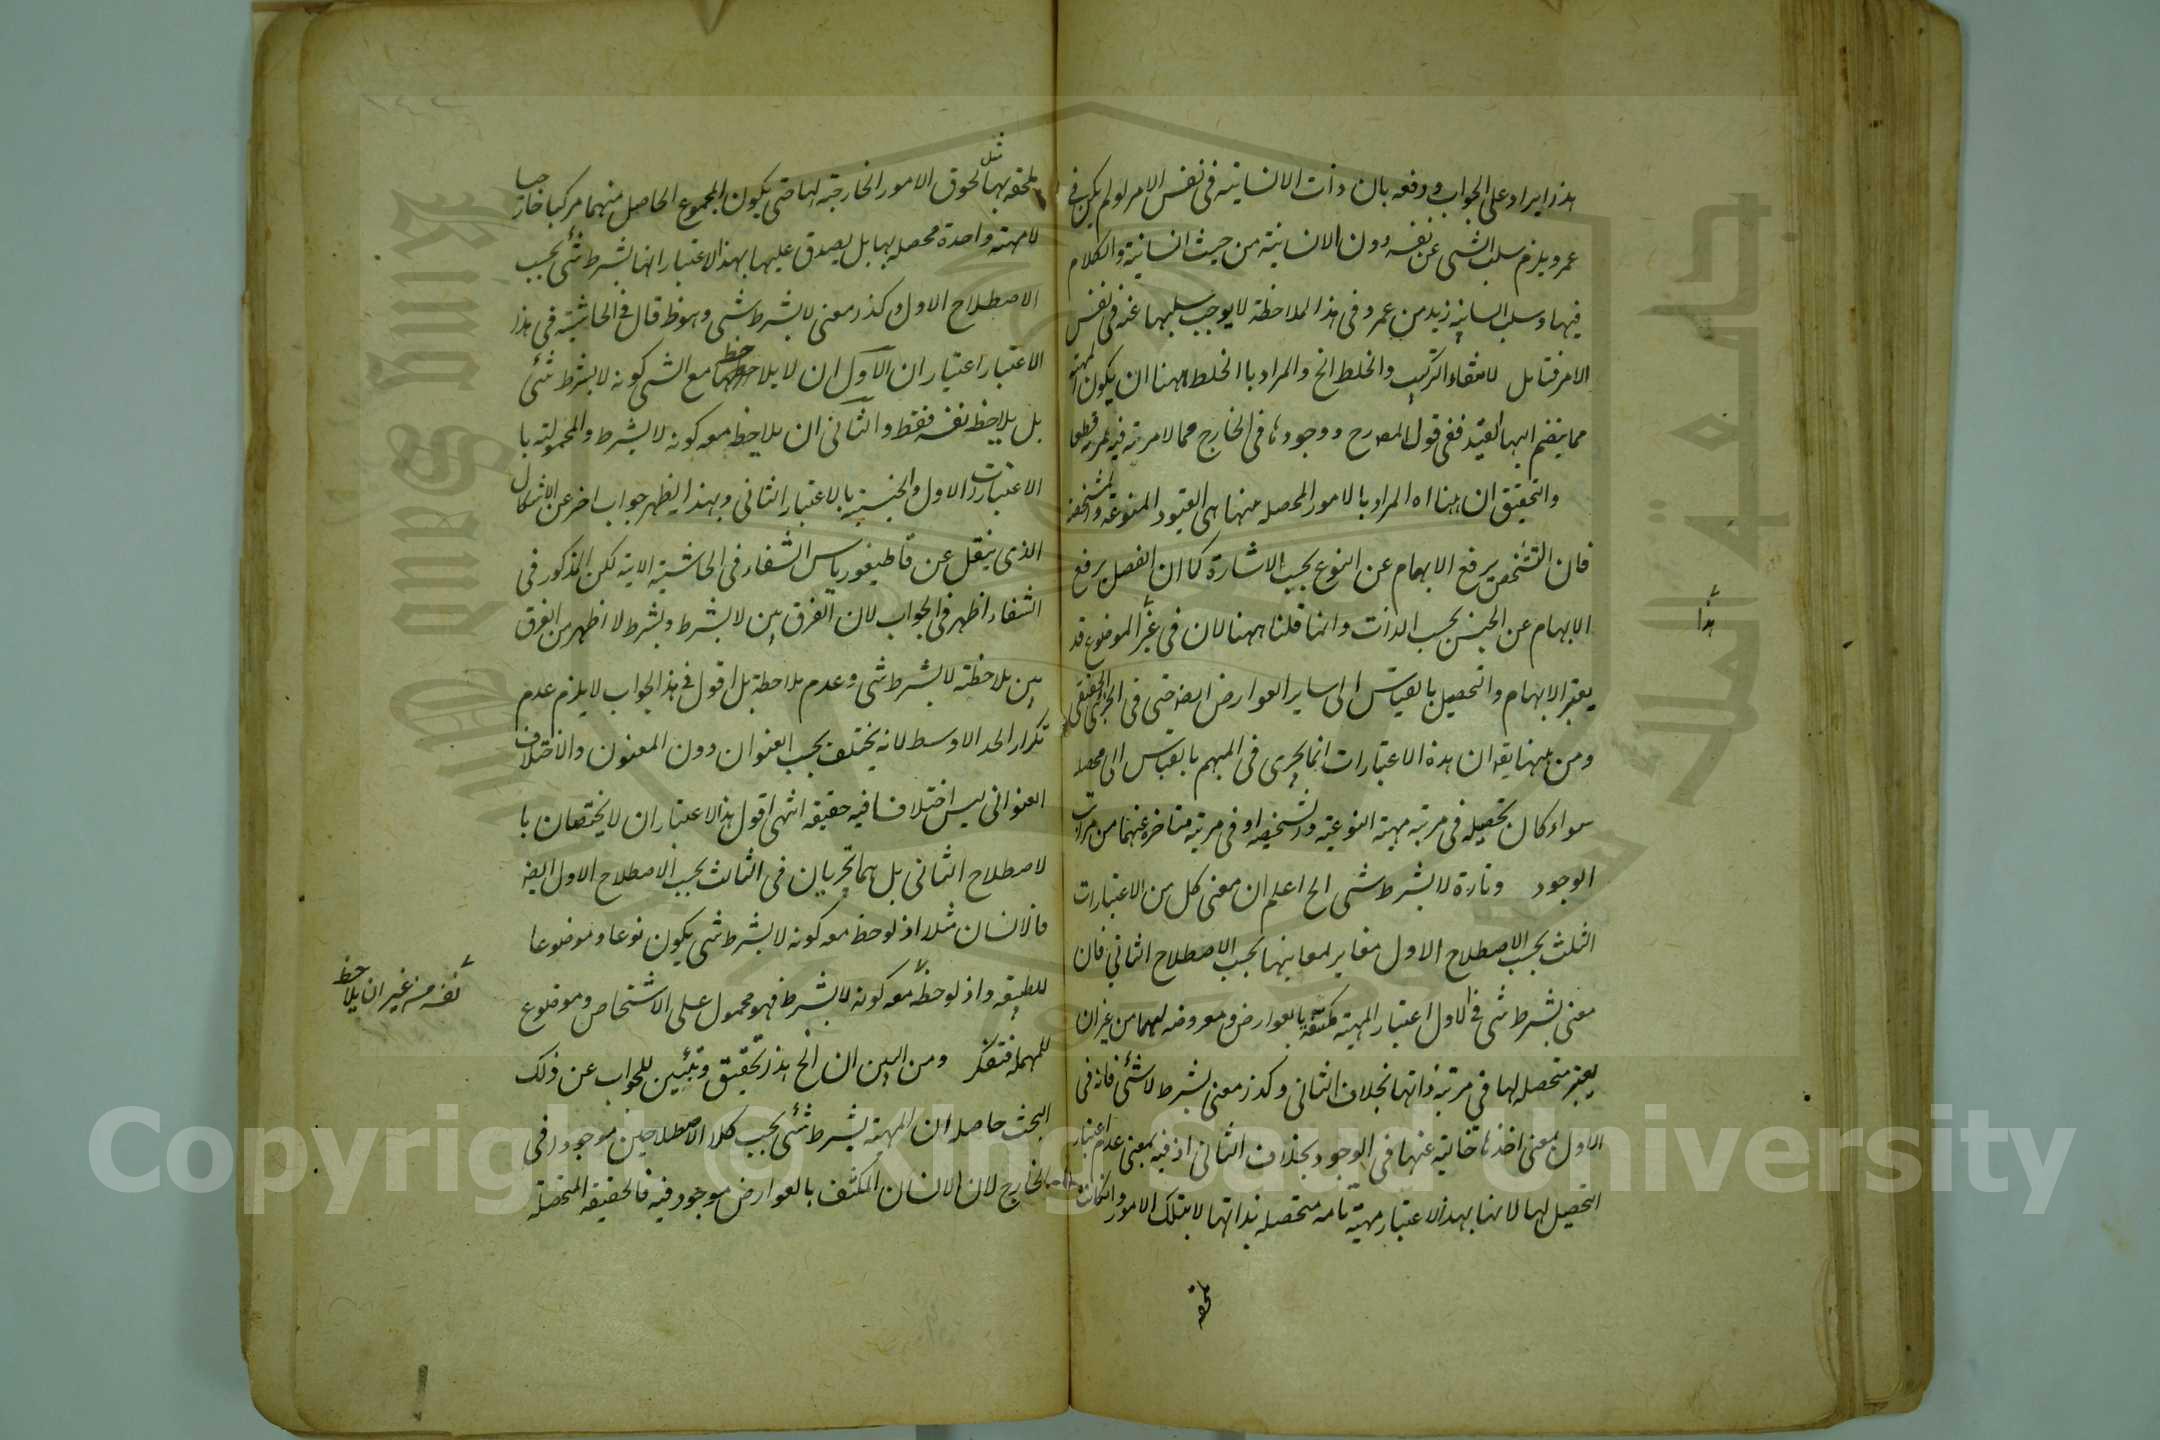 هذا ايراد على الجواب ودفعه بان ذات الانسانية فى نفس الامر لو لم يكن فى
عمرو يلزم سلب الشى عن نفسه دون الانسانية من حيث انسانية والكلام
فيها وسلب انسانية زيد من عمرو فى هذا الملاحظة لا يوجب سلبها عنه فى نفس
الامر فتامل لانتفاء التركيب والخلط الخ والمراد بالخلط ههنا ان يكون المهية
مما ينضم اليها القيد ففى قول المص رح ووجودها فى الخارج مما لا مرية فيه مرية قطعا
والتحقيق ان ههنا اه المراد بالامور المحصلة منها هى القيود المنوعة والمشخصة
فان التشخص يرفع الابهام عن النوع بحسب الاشارة كما ان الفصل يرفع
الابهام عن الجنس بحسب الذات وانما قلنا ههنا لان فى غير الموضوع قد
هذا
يعتبر الابهام والتحصيل بالقياس الى ساير العوارض ايضه حتى فى الجزئى الحقيقى
ومن ههنا يقه ان هذه الاعتبارات انما يجرى فى المبهم بالقياس الى محصله
سواء كان تحصيله فى مرتبة مهية النوعية والشخصية او فى مرتبة متاخرة عنهما من مراتب
الوجود وتارة لا بشرط شى الخ اعلم ان معنى كل من الاعتبارات
الثلث بحسب الاصطلاح الاول مغاير لمعانيها بحسب الاصطلاح الثانى فان
معنى بشرط شى فى الاول اعتبار المهية مكتنفة بالعوارض ومعروضه لهما من غير ان
يعتبر متحصله لها فى مرتبة ذاتها بخلاف الثانى وكذا معنى بشرط لا شئى فانه فى
الاول بمعنى اخذها خالية عنها فى الوجود بخلاف الثانى اذ فيه بمعنى عدم اعتبار
التحصيل لها لانها بهذا الاعتبار مهية تامه متحصله بذاتها لا بتلك الامور وانكانت
ملحقه
ملحقه بها مثل لحوق الامور الخارجية لها حتى يكون المجموع الحاصل منهما مركبا خارجيا
لا مهية واحدة محصله بها بل يصدق عليها بهذا الاعتبار انها بشرط شئى بحسب
الاصطلاح الاول وكذا معنى لا بشرط شى وهو ظ قال فى الحاشية فى هذا
الاعتبار اعتباران الاول ان لا يلاحظ مع الشى كونه لا بشرط شئى
بل يلاحظ نفسه فقط والثانى ان يلاحظ معه كونه لا بشرط والمحمولية با
الاعتبار الاول والجنسية بالاعتبار الثانى وبهذا يظهر جواب اخر عن الاشكال
الذى ينقل عن قاطيغورياس الشفاء فى الحاشية الاتية لكن المذكور فى
الشفاء اظهر فى الجواب لان الفرق بين لا بشرط وبشرط لا اظهر من الفرق
بين ملاحظة لا بشرط شى وعدم ملاحطة بل اقول فى هذا الجواب لا يلزم عدم
تكرار الحد الاوسط لانه يختلف بحسب العنوان دون المعنون والاختلاف
العنوانى ليس اختلافا فيه حقيقة انتهى اقول هذا الاعتباران لا يختصان با
لاصطلاح الثانى بل هما تجريان فى الثالث بحسب الاصطلاح الاول ايضه
فالانسان مثلا اذ لوحظ معه كونه لا بشرط شى يكون نوعا وموضوعا
للطبيعه واذ لوحظ معه كونه لا بشرط فهو محمول على الاشخاص وموضوع
نفسه من غير ان يلاحظ
للمهملة فتفكر ومن البين ان الخ هذا تحقيق وتبئيين للجواب عن ذلك
البحث حاصله ان المهية بشرط شئى بحسب كلا الاصطلاحين موجود فى
الخارج لان الانسان المكتنف بالعوارض موجود فيه فالحقيقة المتحصلة
Copyright © King Saud University